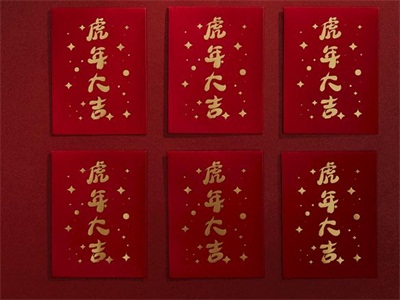 虎年大吉
虎年大吉
虎年大吉
虎年大吉
虎年大吉
虎年大吉